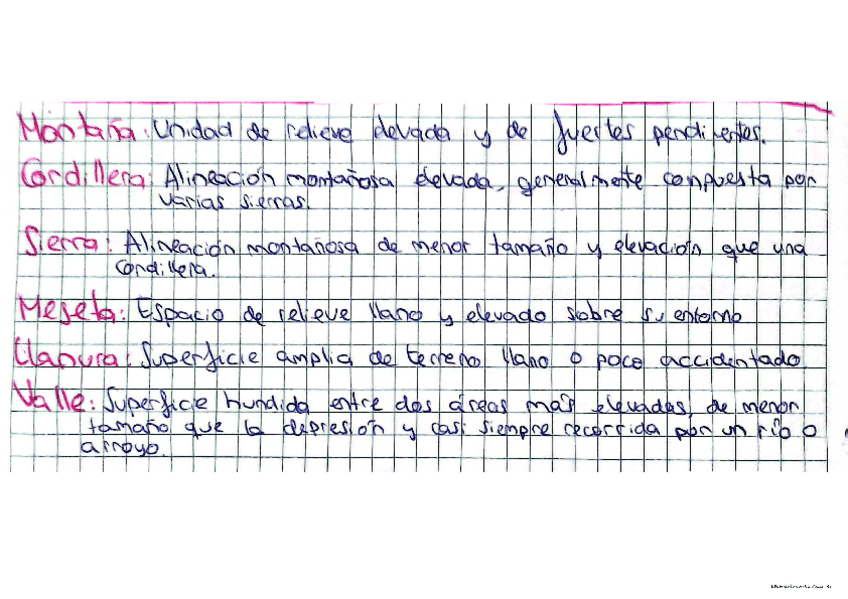 Montaña: Unidad de relieve elevada y de fuertes pendientes.
Cordillera: Alineación montañosa elevada, generalmente compuesta por
varias sierras.
Sierra: Alineación montañosa de menor tamaño y elevación que una
cordillera.
Meseta: Espacio de relieve llano y elevado sobre su entorno
Llanura: Superficie amplia de terreno llano o poco accidentado
Valle: Superficie hundida entre dos áreas más elevadas, de menor
tamaño que la depresión y casi siempre recorrida por un río o
arroyo.